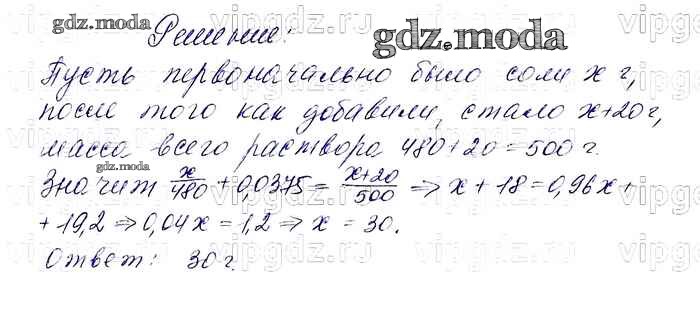 Решение:
gdz.moda
gdz.moda
Пусть первоначально было соли x г,
после того как добавили, стало x+20 г,
масса всего раствора 480+20=500 г.
gdz.moda
Значит x/480 + 0,0375 = x+20/500 ⇒ x+18=0,96x+
+19,2 ⇒ 0,04x = 1,2 ⇒ x = 30.
Ответ: 30 г.
vipgdz.ru